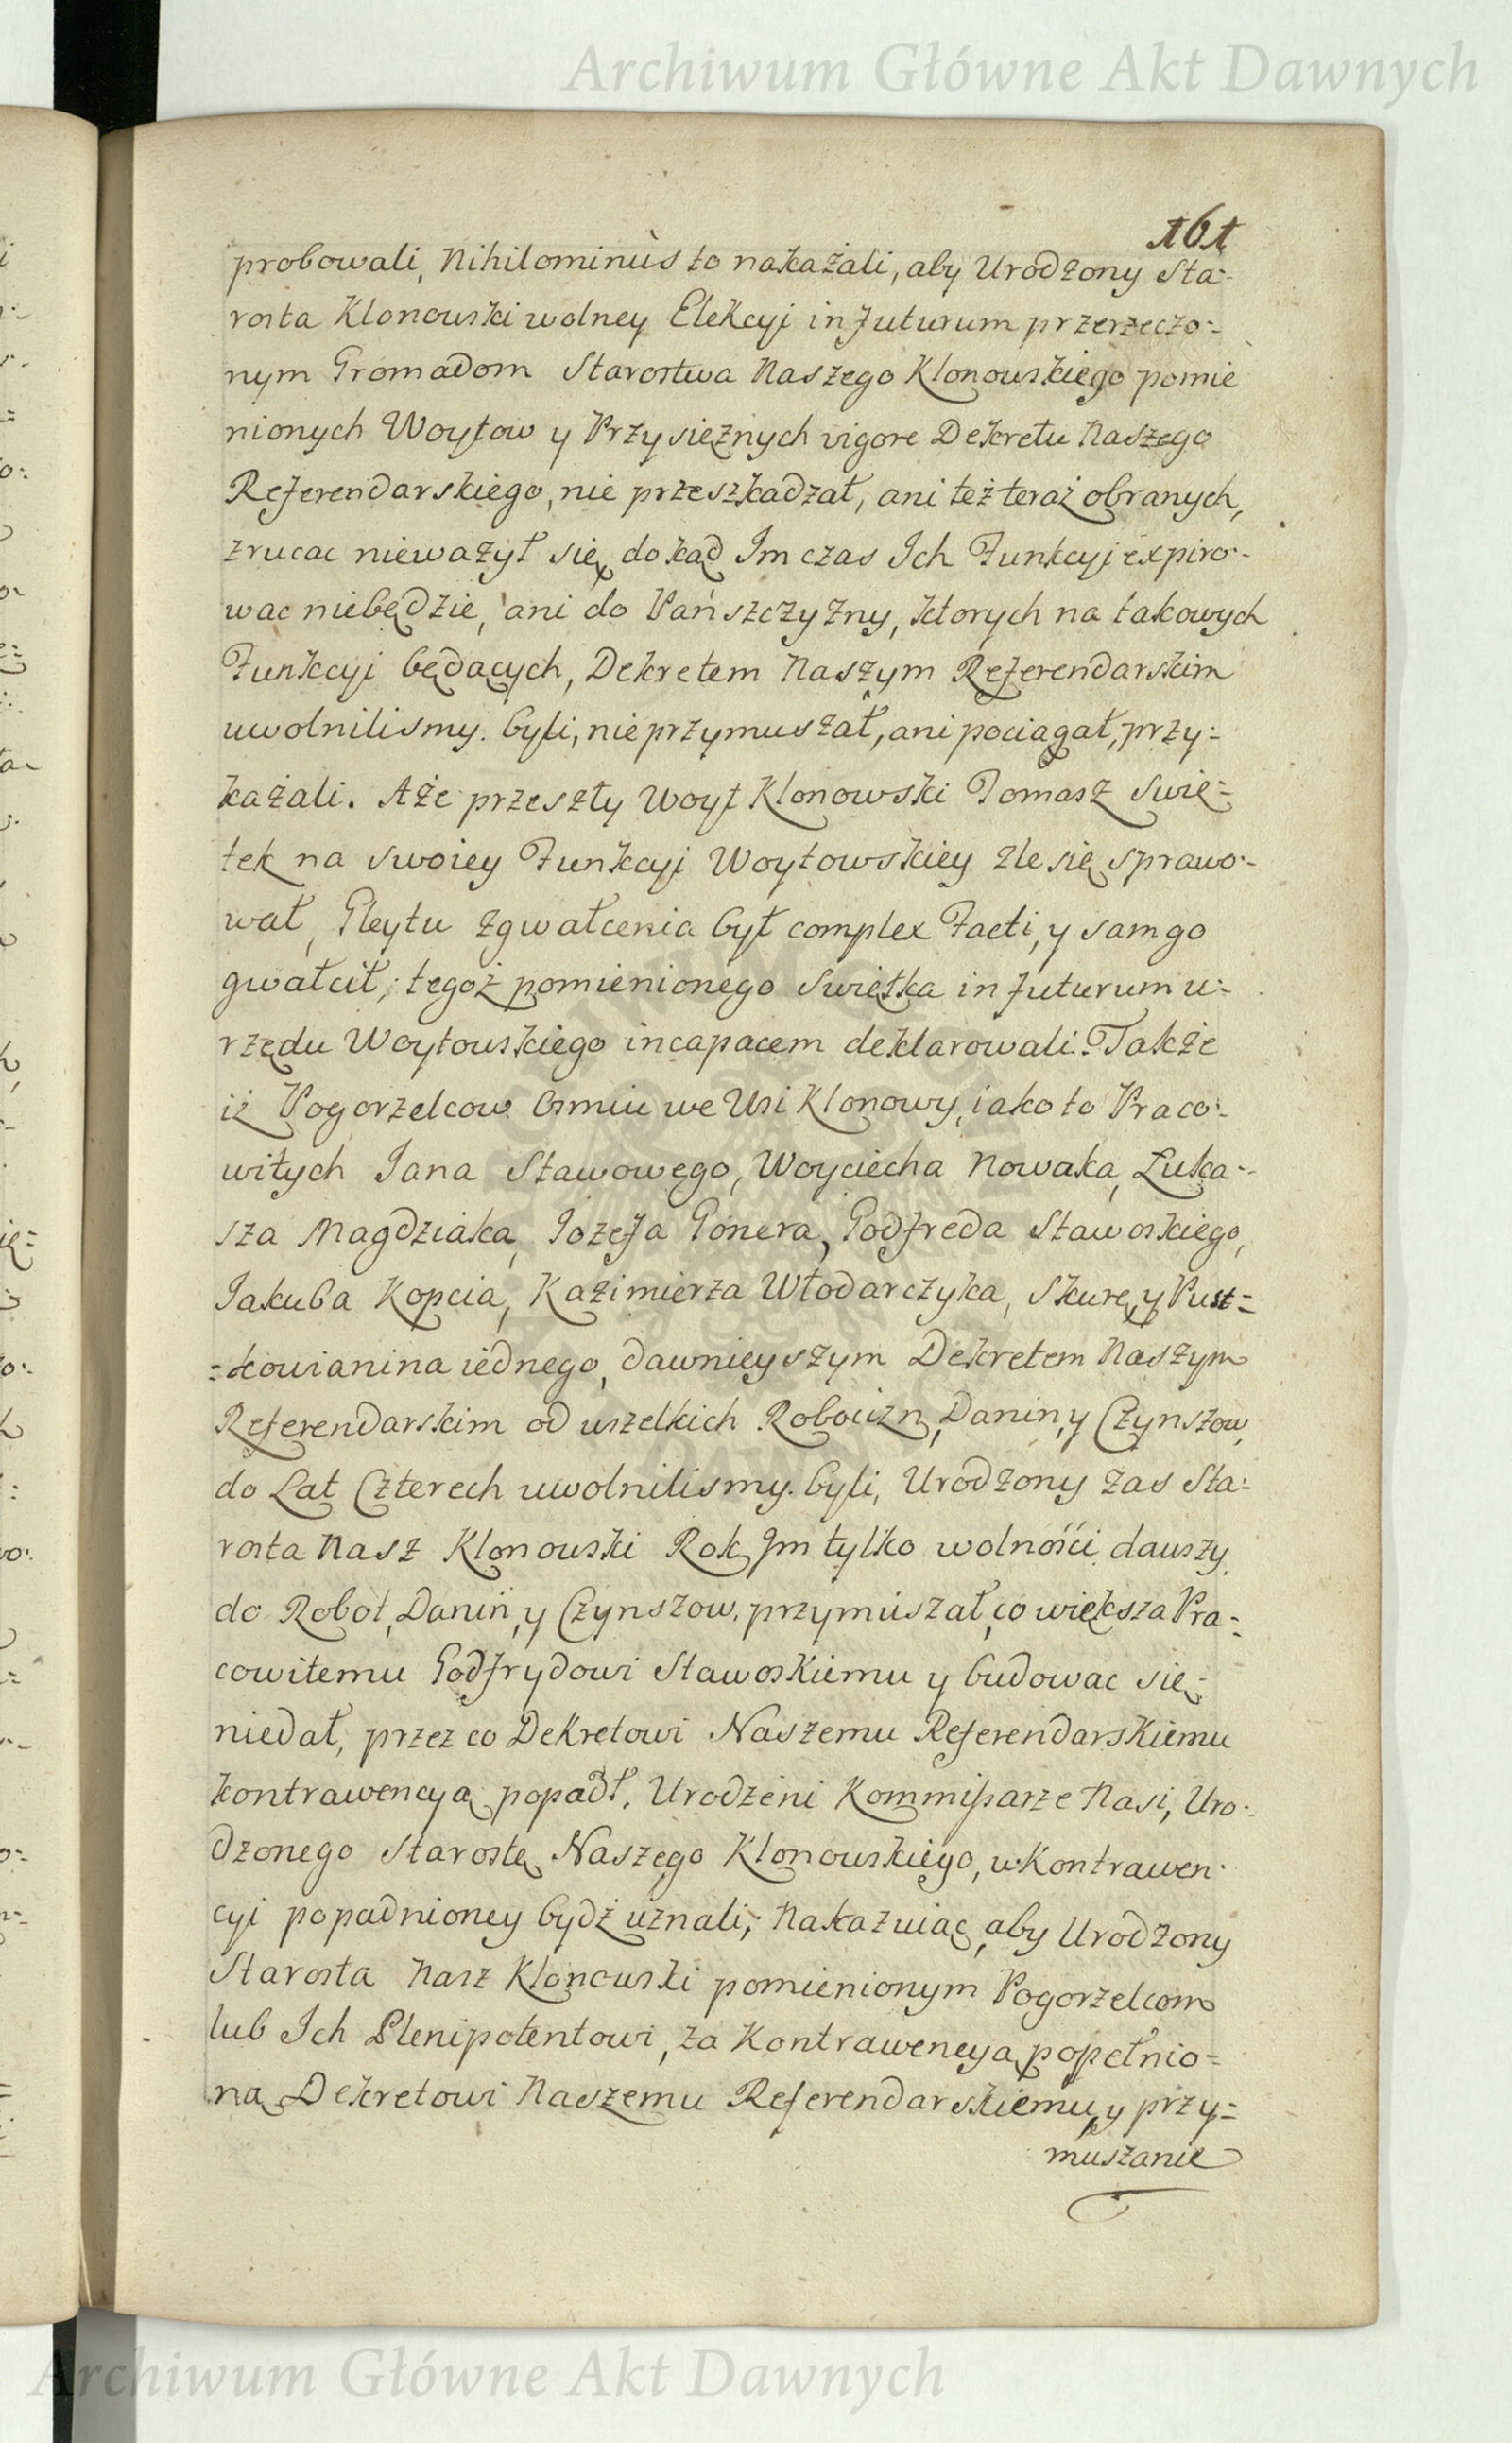 Archiwum Główne Akt Dawnych
161
probowali, Nihilominùs to nakażali, aby Urodzony Sta:-
rosta Klonowski wolney Elekcyi in futurum przerzeczo:-
nym Gromadom Starostwa Naszego Klonowskiego pomie
nionych Woytow y Przysiężnych vigore Dekretu Naszego
Referendarskiego, nie przeszkadzał, ani też teraż obranych,
zrucac nieważył się, dokąd Im czas Ich Funkcyi expiro:-
wac niebędzie, ani do Pańszczyzny, ktorych na takowych
Funkcyi będących, Dekretem Naszym Referendarskim
uwolnilismy byli, nieprzymuszał, ani pociągał, przy:-
każali. Aże przeszły Woyt Klonowski Tomasz Swię:-
tek na swoiey Funkcyi Woytowskiey zle się sprawo:-
wał, Gleytu zgwałcenia był complex Facti, y sam go
gwałcił, tegoż pomienionego Swiętka in futurum u:-
rzędu Woytowskiego incapacem deklarowali. Także
iż Pogorzelcow Osmiu we Wsi Klonowy, iako to Praco:-
witych Jana Stawowego, Woyciecha Nowaka, Luka:-
sza Magdziaka, Jozefa Gonera, Godfreda Stawoskiego,
Jakuba Kopcia, Kazimierza Włodarczyka, Skurę, y Pust=
=kowianina iednego, dawnieyszym Dekretem Naszym
Referendarskim od wszelkich Robocizn, Danin, y Czynszow,
do Lat Czterech uwolnilismy byli, Urodzony zas Sta:-
rosta Nasz Klonowski Rok Im tylko wolnośći dawszy,
do Robot, Danin, y Czynszow, przymuszał, co większa Pra:-
cowitemu Godfrydowi Stawoskiemu y budowac się
niedał, przez co Dekretowi Naszemu Referendarskiemu
kontrawencyą popadł. Urodzeni Kommissarze Nasi, Uro:-
dzonego Starostę Naszego Klonowskiego, w Kontrawen:
cyi popadnioney bydź uznali, Nakazuiąc, aby Urodzony
Starosta Nasz Klonowski pomienionym Pogorzelcom
lub Ich Plenipotentowi, za Kontrawencyą popełnio=
ną Dekretowi Naszemu Referendarskiemu, y przy:=
muszanie
Archiwum Główne Akt Dawnych